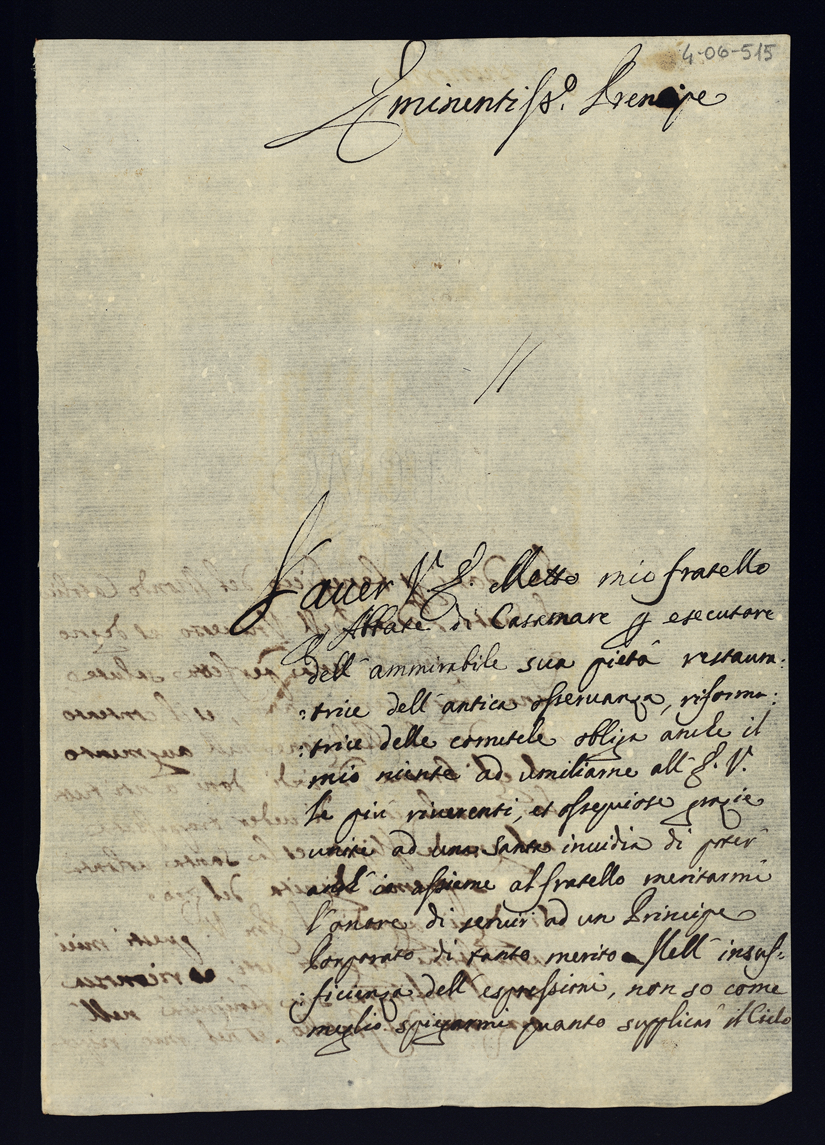 4-06-515
Eminentiss.º Prencipe
L'auer V.ª E. Eletto mio fratello
p Abbate di Casamare p esecutore
dell'ammirabile sua pietà restaura:
:trice dell'antica osseruanza, riforma:
:trice delle obliga anche il
mio niente ad umiliarne all'E. V.
le più riuerenti, et ossequiose grazie
unite ad una santa inuidia di poter
anch'io assieme al fratello meritarmi
l'onore di seruir ad un Principe
Porporato di tanto merito. Nell'insuf:
:ficienza dell'espressioni, non so come
meglio spiegarmi quanto supplicar il Cielo